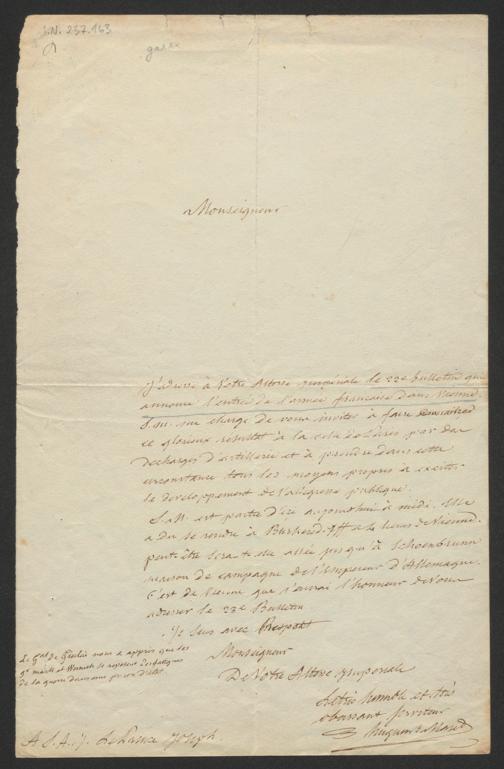 I.N. 237.163
Monseigneur
J'adresse à Votre Altesse impériale le 22e bulletin qui
annonce l'entrée de l'armée francaise dans Vienne
S.M. me charge de vous inviter à faire connaitre
ce glorieux resultat à la ville de Paris par des
decharges d'artillerie et à prendre dans cette
circonstance tous les moyens propres à exciter
le developpement de l'allegresse publique.
S.M. est partie d'ici aujourdhui à midi. Elle
a du se rendre à à lieues de Vienne.
peut être sera-t-elle allée jusqu'à Schoenbrunn
maison de campagne de l'Empereur d'Allemagne.
C'est de Vienne que j'aurai l'honneur de vous
adresser le 23e Bulletin
Je suis avec Respect
Monseigneur
De Votre Altesse imperiale
Le Gal de Giulio nous a appris que les
gx mack et se reposent
de la
Le très humble et très
obeissant serviteur
Hugues Maret
A S.A.I. Le Prince Joseph.